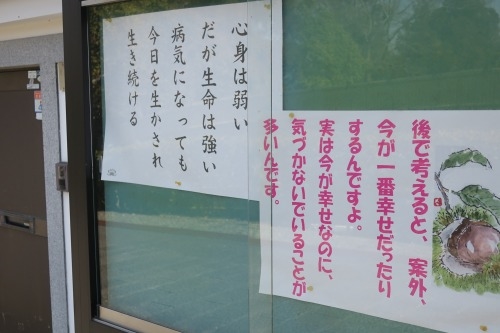 心身は弱い
だが生命は強い
病気になっても
今日を生かされ
生き続ける
後で考えると、案外、
今が一番幸せだったり
するんですよ。
実は今が幸せなのに、
気づかないでいることが
多いんです。